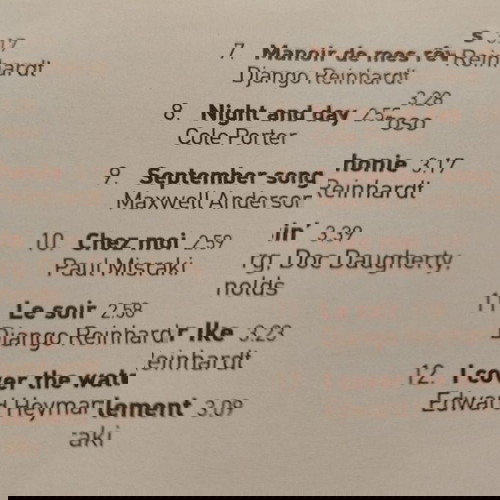 s 3:17
Reinhardt
7. Manoir de mes rêv
Django Reinhardt
3:28
8. Night and day 2:55
oso
Cole Porter
9. September song
honie 3:17
Maxwell Anderson
Reinhardt
10. Chez moi 2:59
in' 3:39
Paul Misraki
rg, Doc Daugherty,
nolds
11. Le soir 2:58
Django Reinhard
r Ike 3:23
leinhardt
12. I cover the wat
Edward Heyman
lement 3:09
aki